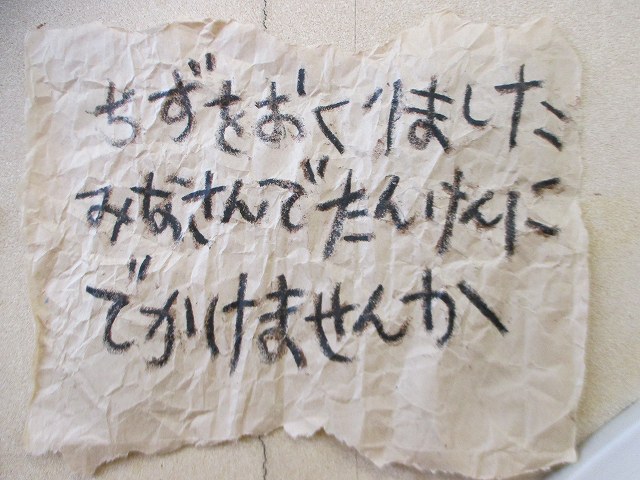 ちずをおくりました
みなさんでたんけんに
でかけませんか